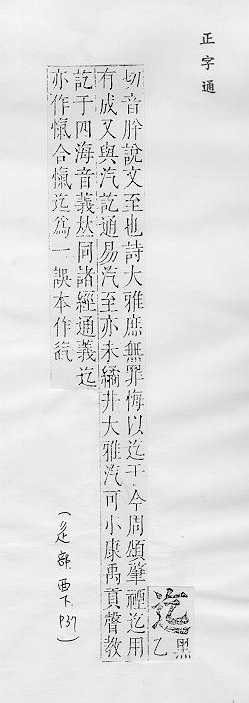 正字通
迄
黑乙
切音肸說文至也詩大雅庶無罪悔以迄于今周頌肇禋迄用
有成又與汽訖通易汽至亦未繘井大雅汽可小康禹貢聲教
訖于四海音義𠀤同諸經通義迄
亦作愾合愾迄爲一誤本作
(辵部,酉下,P37)